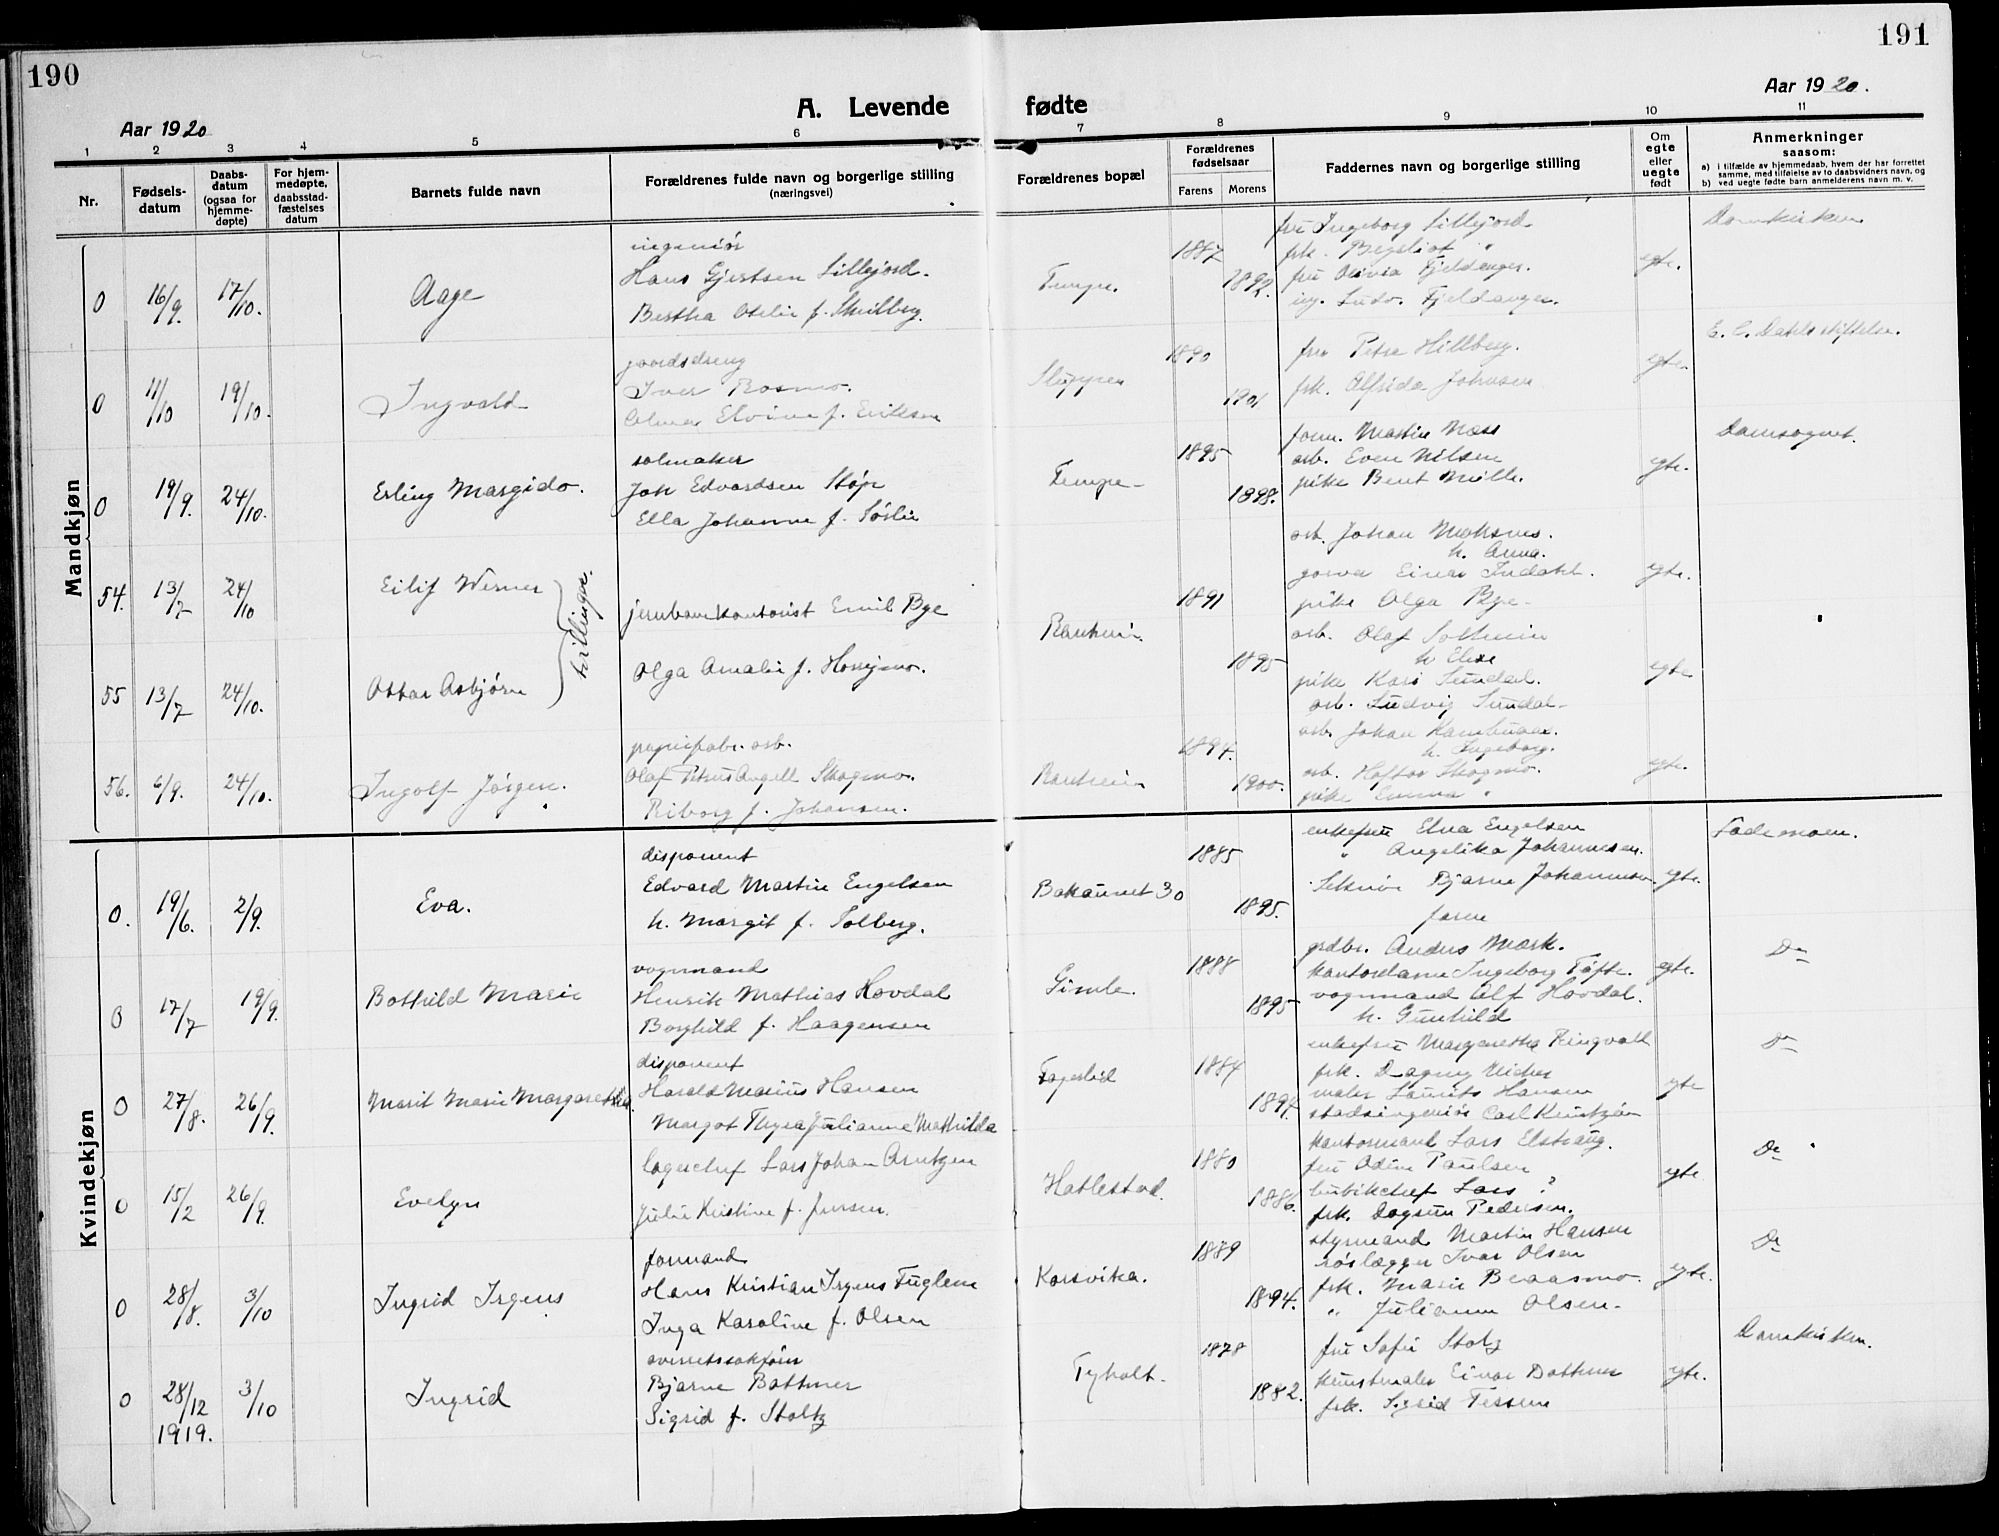 190
191
A. Levende fødte
Aar 1920
Aar 1920.
1 2 3 4 5 6 7 8 9 10 11
Nr.
Fødsels-
datum
Daabs-
datum
(ogsaa for
hjemme-
døpte)
For hjem-
medøpte,
daabsstad-
fæstelses
datum
Barnets fulde navn
Forældrenes fulde navn og borgerlige stilling
(næringsvei)
Forældrenes bopæl
Forældrenes
fødselsaar
Farens Morens
Faddernes navn og borgerlige stilling
Om
egte
eller
uegte
født
Anmerkninger
saasom:
a) i tilfælde av hjemmedaab, hvem der har forrettet
samme, med tilføielse av to daabsvidners navn, og
b) ved uegte fødte barn anmelderens navn m. v.
Mandkjøn
0 16/9. 17/10. Aage
ingeniør
Hans Gjertsen Lillejord.
Bertha Otelie f.
Tempe. 1887 1892.
fru Ingeborg Lillejord
frk. Bergliot "
fru Olivia Fjeldanger.
ing. Ludv. Fjeldanger.
egte.
Domkirken
0 11/10 19/10. Ingvald
gaardsdreng
Iver Rosmo.
Elvine f. Eriksen
Sluppen 1890 1901
fru Petra Hillberg.
frk. Alfrida Johnsen
egte.
E. C. Dahls stiftelse.
0 19/9. 24/10. Erling Margido.
salmaker
Joh Edvardsen Støp
Ella Johanne f. Sørlie
Tempe 1895 1898.
form. Martin Næss
arb. Even Nilsen
pike Berit Mille.
egte.
Domsognet.
54. 13/7 24/10 Eilif Werner
tvillinger.
jernbanekontorist Emil Bye
Olga Amalie f.
Ranheim 1891 1895
arb. Johan
h. Anna.
Einar Indahl.
pike Olga Bye
egte.
55 13/7 24/10. Ottar Asbjørn
arb. Olaf Solheim
h Elise
pike Kari Sundal.
arb. Ludvig Sundal
egte
56. 6/9. 24/10. Ingolf Jørgen.
papirfabr. arb.
Olaf Petrus Angell Skogmo.
Riborg f. Johansen.
Ranheim 1894. 1900.
arb. Johan
h. Ingeborg.
arb. Haftor Skogmo.
pike Emma "
egte.
Kvindekjøn
0. 19/6. 2/9. Eva.
disponent
Edvard Martin Engelsen
h. Margit f. Solberg.
Bakaunet 30 1885 1895.
enkefru Elna Engelsen
" Angelika Johannesen.
Bjarne Johannesen
faren
egte.
Lademoen.
0 17/7 19/9. Bothild Marie
vognmand
Henrik Mathias Hovdal
Borghild f. Haagensen
Gimle. 1888 1895
grdbr. Anders Mørk.
kontordame Ingeborg Tøfte.
vognmand Alf Hovdal.
h. Gunhild
egte.
Do
0 27/8. 26/9. Marit Marie Margaretha.
disponent
Harald Marius Hansen
Margot Thyra Julianne Mathilda
Fagerlid 1884 1894.
enkefru Margaretha Ringvold
frk. Dagny
maler Laurits Hansen
stadsingeniør Carl
egte
Do
0 15/2 26/9. Evelyn
lagerchef Lars Johan Arntzen
Julie Kristine f. Jensen.
Hatlestad. 1880 1886.
kontormand Lars
fru Odine Paulsen
Lars ?
frk. Dagrun Pedersen.
egte
Do
0 28/8. 3/10 Ingrid Irgens
formand
Hans Kristian Irgens Fuglem
Inga Karoline f. Olsen
Korsvika. 1889 1894.
styrmand Martin Hansen
rørlægger Ivar Olsen
frk. Marie Beaasmo.
" Julianne Olsen.
egte.
Do
0 28/12 1919. 3/10 Ingrid
overretssakfører
Bjarne Bothner
Sigrid f. Stoltz
Tyholt. 1878 1882.
fru Sofie Stolz
kunstmaler Einar Bothner
frk. Sigrid Tessem
egte.
Domkirken.